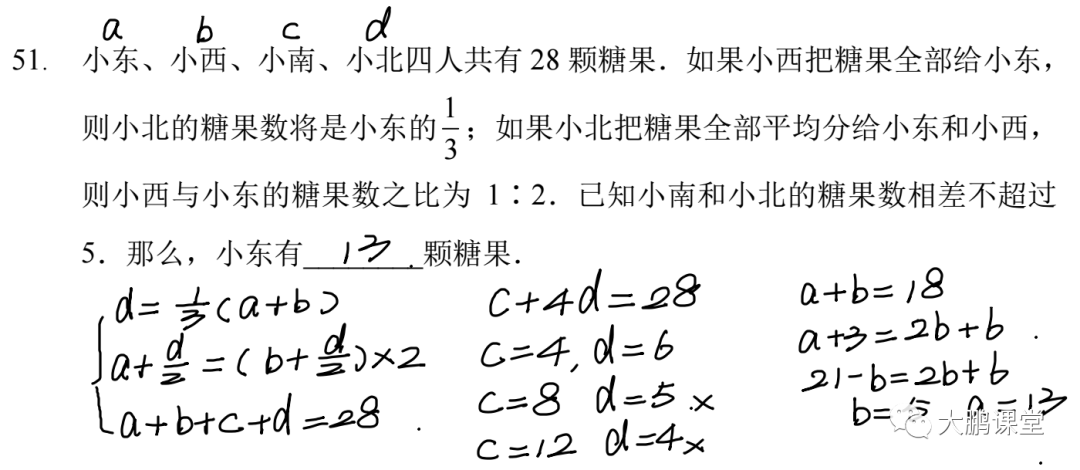 a b c d
51. 小东、小西、小南、小北四人共有 28 颗糖果．如果小西把糖果全部给小东，
则小北的糖果数将是小东的 1/3；如果小北把糖果全部平均分给小东和小西，
则小西与小东的糖果数之比为 1∶2．已知小南和小北的糖果数相差不超过
5．那么，小东有 13 颗糖果．
d = 1/3 (a+b)
a + d/2 = (b + d/2)×2
a+b+c+d=28
c+4d=28
c=4, d=6
c=8 d=5 ×
c=12 d=4 ×
a+b=18
a+3=2b+6
21-b=2b+6
b=5 a=13
大鹏课堂